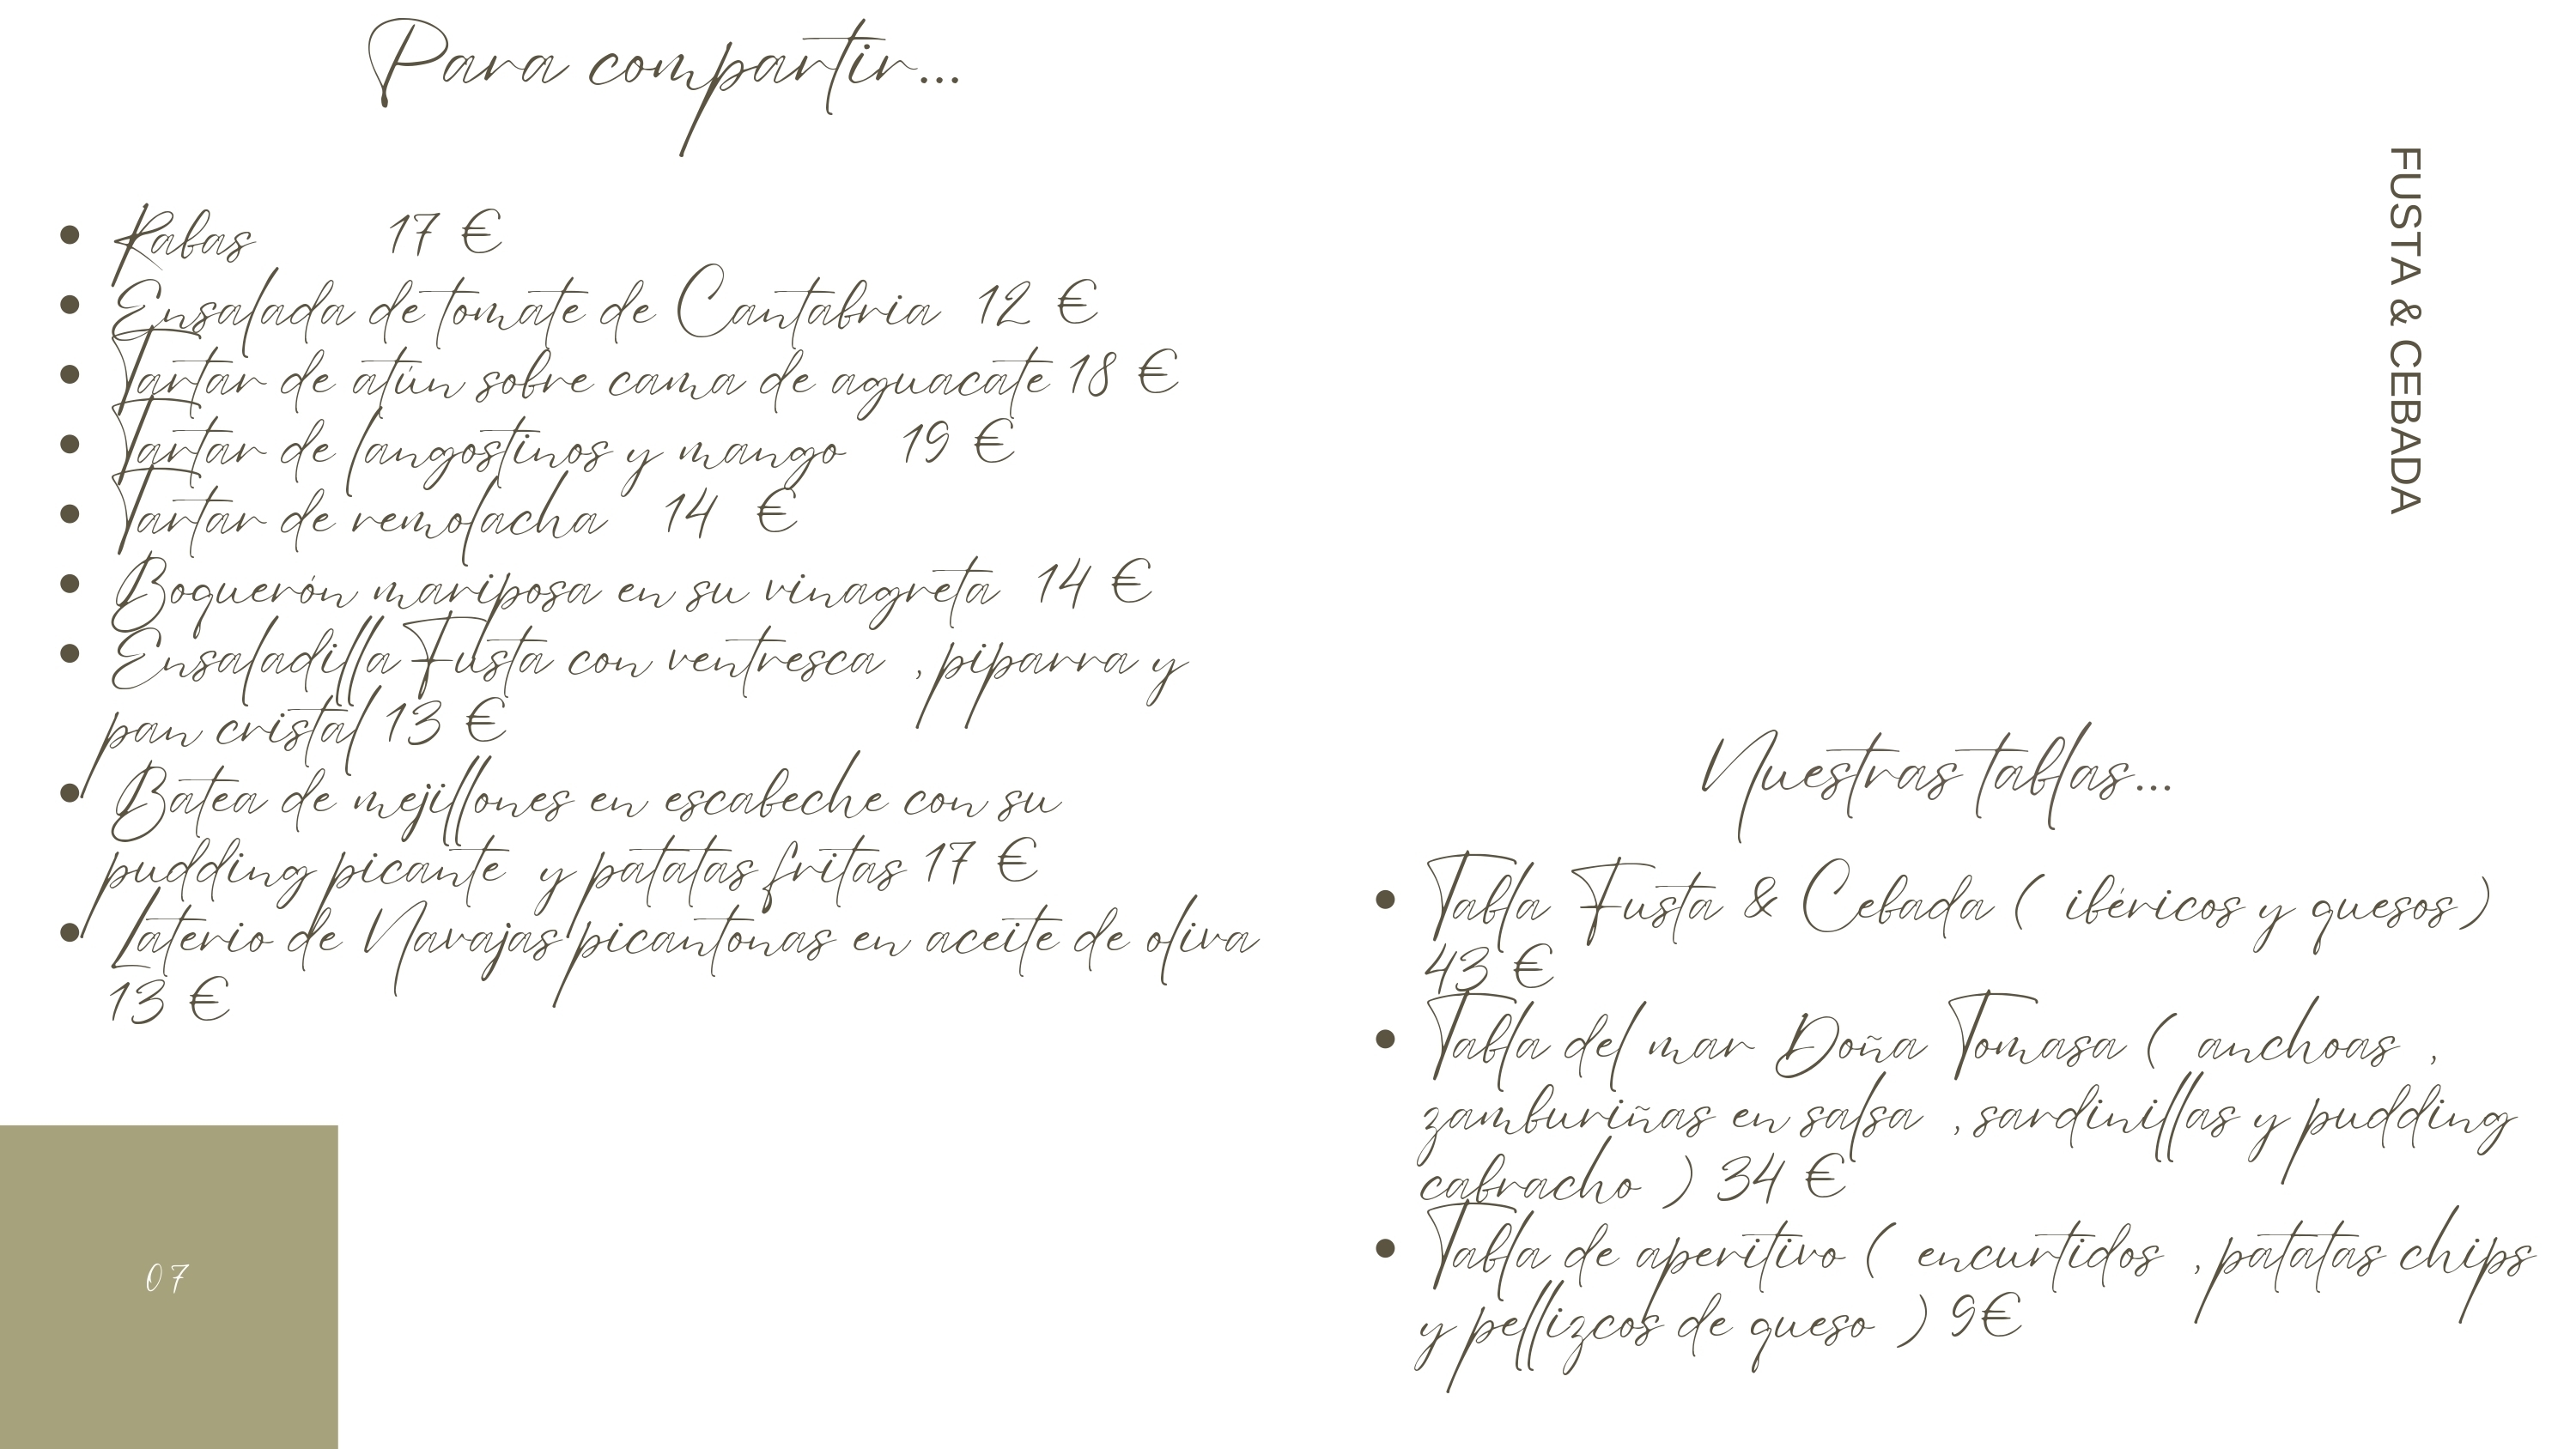 Para compartir...
Rabas 17 €
Ensalada de tomate de Cantabria 12 €
Tartar de atún sobre cama de aguacate 18 €
Tartar de langostinos y mango 19 €
Tartar de remolacha 14 €
Boquerón mariposa en su vinagreta 14 €
Ensaladilla Fusta con ventresca , piparra y
pan cristal 13 €
Batea de mejillones en escabeche con su
pudding picante y patatas fritas 17 €
Laterio de Navajas picantonas en aceite de oliva
13 €
07
FUSTA & CEBADA
Nuestras tablas...
Tabla Fusta & Cebada ( ibéricos y quesos )
43 €
Tabla del mar Doña Tomasa ( anchoas ,
zamburiñas en salsa , sardinillas y pudding
cabracho ) 34 €
Tabla de aperitivo ( encurtidos , patatas chips
y pellizcos de queso ) 9€